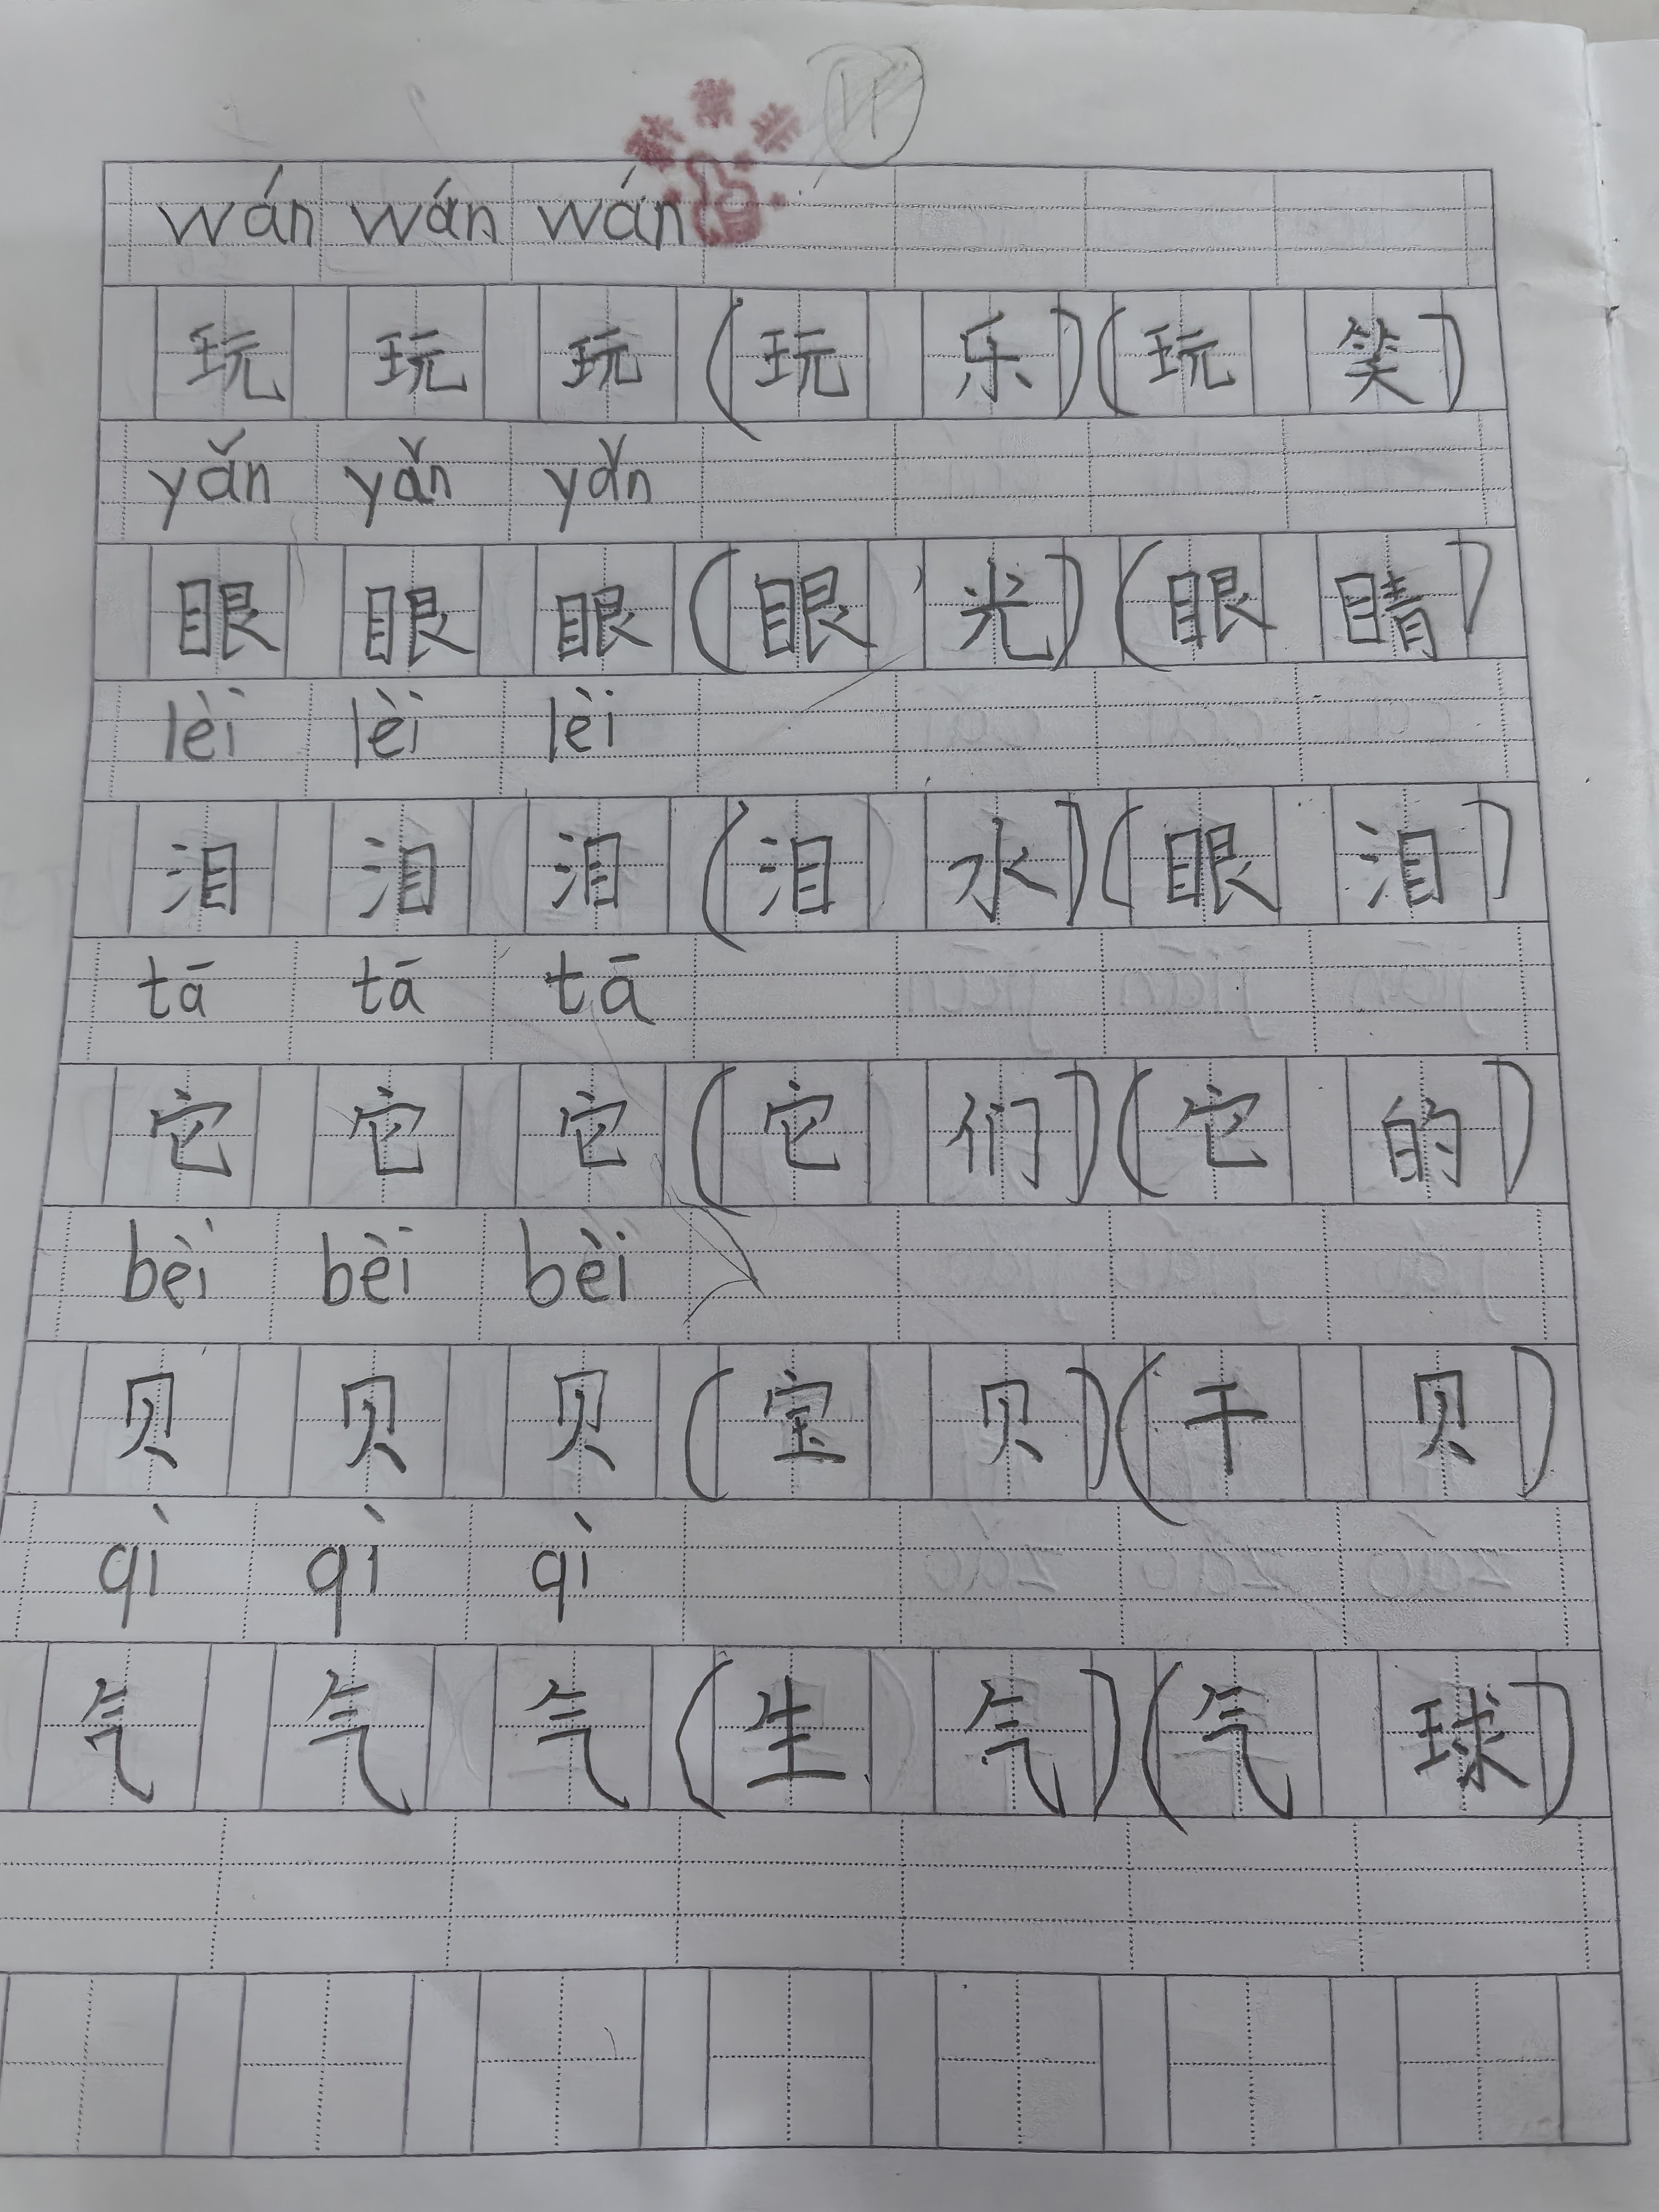 wán wán wán
玩 玩 玩 (玩 乐)(玩 笑)
yǎn yǎn yǎn
眼 眼 眼 (眼 光)(眼 睛)
lèi lèi lèi
泪 泪 泪 (泪 水)(眼 泪)
tā tā tā
它 它 它 (它 们)(它 的)
bèi bèi bèi
贝 贝 贝 (宝 贝)(干 贝)
qì qì qì
气 气 气 (生 气)(气 球)